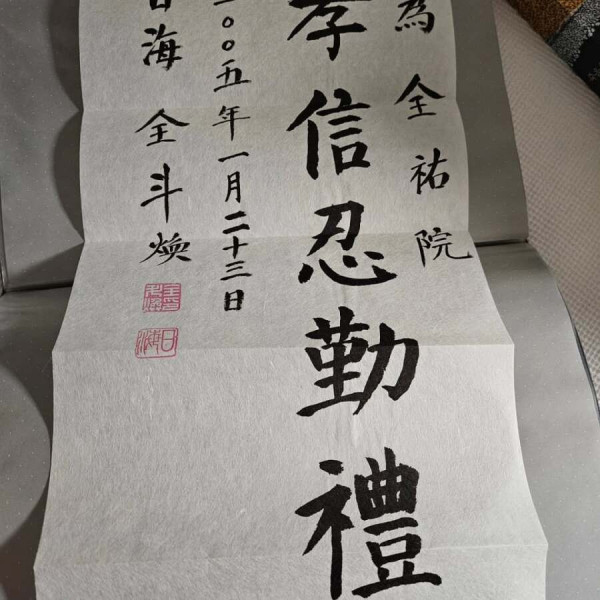 為全祐院
孝信忍勤禮
二〇〇五年一月二十三日
日海 全斗煥